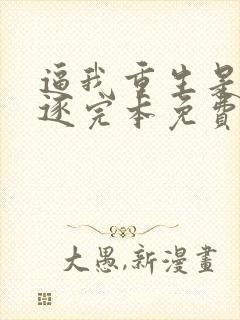 逼我重生是
逐完本免費
大愚,新漫畫